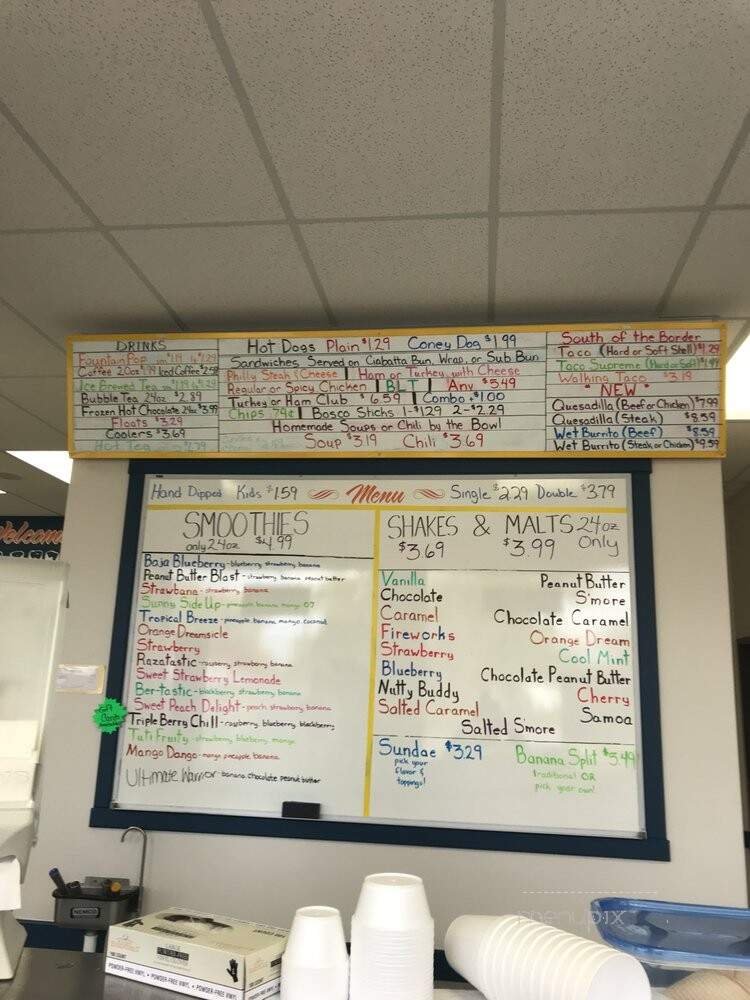 DRINKS
Fountain Pop sm $1.19 lg $1.29
Coffee 20oz $1.19 Iced Coffee $2.59
Ice Brewed Tea sm $1.19 lg $1.29
Bubble Tea 24oz $2.89
Frozen Hot Chocolate 24oz $3.99
Floats $3.29
Coolers $3.69
Hot Tea
Hot Dogs Plain $1.29 Coney Dog $1.99
Sandwiches Served on Ciabatta Bun, Wrap, or Sub Bun
Philly Steak & Cheese | Ham or Turkey with Cheese
Regular or Spicy Chicken | BLT | Any $5.49
Turkey or Ham Club $6.59 | Combo + $1.00
Chips .79¢ | Bosco Sticks 1-$1.29 2-$2.29
Homemade Soups or Chili by the Bowl
Soup $3.19 Chili $3.69
South of the Border
Taco (Hard or Soft Shell) $1.29
Taco Supreme (Hard or Soft) $1.99
Walking Taco $3.19
NEW
Quesadilla (Beef or Chicken) $7.99
Quesadilla (Steak) $8.59
Wet Burrito (Beef) $8.59
Wet Burrito (Steak or Chicken) $9.59
Hand Dipped Kids $1.59 Menu Single $2.29 Double $3.79
SMOOTHIES
only 24oz $4.99
Baja Blueberry - blueberry strawberry banana
Peanut Butter Blast - strawberry banana peanut butter
Strawbana - strawberry banana
Sunny Side Up - pineapple banana mango OJ
Tropical Breeze - pineapple banana mango coconut
Orange Dreamsicle
Strawberry
Razatastic - raspberry strawberry banana
Sweet Strawberry Lemonade
Ber-tastic - blackberry strawberry banana
Sweet Peach Delight - peach strawberry banana
Triple Berry Chill - raspberry, blueberry, blackberry
Tuti Fruity - strawberry blueberry mango
Mango Dango - mango pineapple banana
Ultimate Warrior - banana chocolate peanut butter
SHAKES & MALTS 24oz
$3.69 $3.99 Only
Vanilla
Chocolate
Caramel
Fireworks
Strawberry
Blueberry
Nutty Buddy
Salted Caramel
Peanut Butter
S'more
Chocolate Caramel
Orange Dream
Cool Mint
Chocolate Peanut Butter
Cherry
Samoa
Salted S'more
Sundae $3.29
pick your
flavor &
toppings!
Banana Split $5.49
traditional OR
pick your own!
Welcome
Gift
Cards
NEMCO
POWDER-FREE VINYL • POWDER-FREE VINYL • POWDER-FREE VINYL
menupix